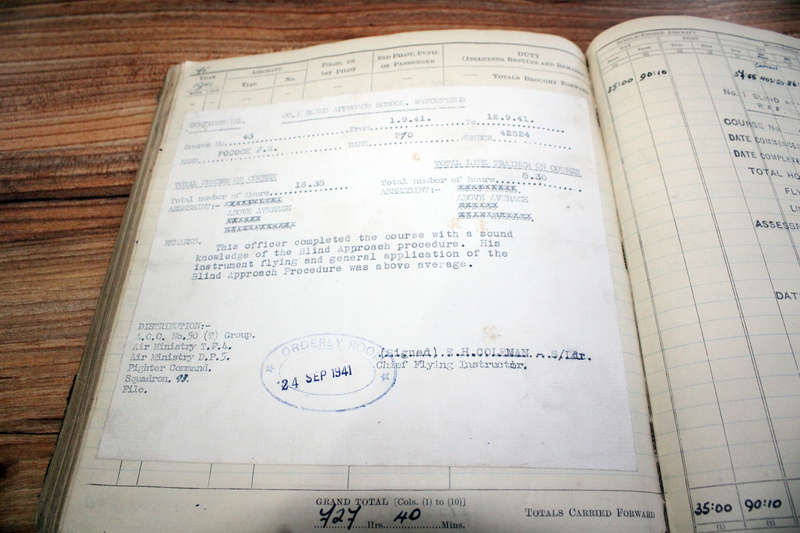 YEAR
AIRCRAFT
Type
No.
PILOT, OR
1ST PILOT
2ND PILOT, PUPIL
OR PASSENGER
DUTY
(INCLUDING RESULTS AND REMARKS)
TOTALS BROUGHT FORWARD
CONFIDENTIAL. No.1 BLIND APPROACH SCHOOL, WATCHFIELD
Course No. 43 From 1.9.41. To 12.9.41.
NAME POCOCK P.R. RANK P/O NUMBER 42524
TOTAL FLYING ON COURSE
Total number of hours 18.30
ASSESSMENT:-
ABOVE AVERAGE
TOTAL LINK TRAINER ON COURSE
Total number of hours 8.30
ASSESSMENT:-
ABOVE AVERAGE
REMARKS. This officer completed the course with a sound
knowledge of the Blind Approach procedure. His
instrument flying and general application of the
Blind Approach Procedure was above average.
DISTRIBUTION:-
A.O.C. No.50 (T) Group.
Air Ministry T.F.4.
Air Ministry D.P.5.
Fighter Command.
Squadron.
File.
ORDERLY ROOM
24 SEP 1941
(Signed) E.H.COLEMAN. A S/Ldr.
Chief Flying Instructor.
GRAND TOTAL [Cols. (1) to (10)]
727 Hrs. 40 Mins.
TOTALS CARRIED FORWARD
35:00 90:10
COURSE No
DATE COMMENCED
DATE COMPLETED
TOTAL HO
FLY
LIN
ASSESSM
DATE
35:00 90:10
(1) (2)